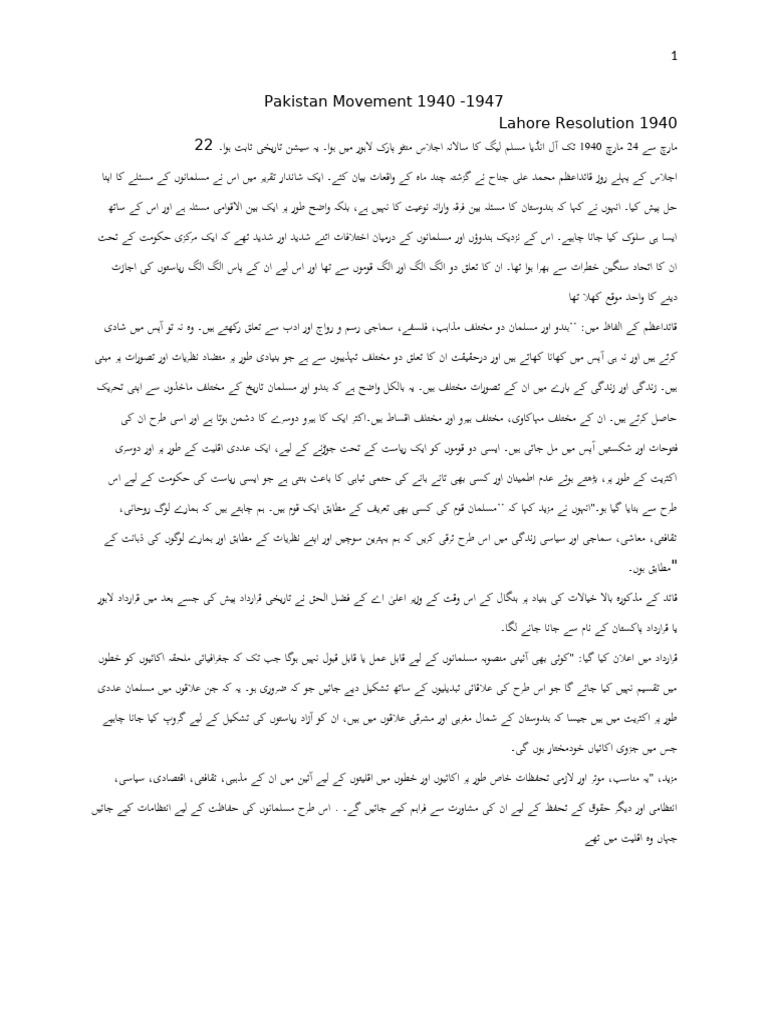 1
Pakistan Movement 1940 -1947
Lahore Resolution 1940
مارچ سے 24 مارچ 1940 تک آل انڈیا مسلم لیگ کا سالانہ اجلاس منٹو پارک لاہور میں ہوا۔ یہ سیشن تاریخی ثابت ہوا۔ 22
اجلاس کے پہلے روز قائداعظم محمد علی جناح نے گزشتہ چند ماہ کے واقعات بیان کئے۔ ایک شاندار تقریر میں اس نے مسلمانوں کے مسئلے کا اپنا
حل پیش کیا۔ انہوں نے کہا کہ ہندوستان کا مسئلہ بین فرقہ وارانہ نوعیت کا نہیں ہے، بلکہ واضح طور پر ایک بین الاقوامی مسئلہ ہے اور اس کے ساتھ
ایسا ہی سلوک کیا جانا چاہیے۔ اس کے نزدیک ہندوؤں اور مسلمانوں کے درمیان اختلافات اتنے شدید اور شدید تھے کہ ایک مرکزی حکومت کے تحت
ان کا اتحاد سنگین خطرات سے بھرا ہوا تھا۔ ان کا تعلق دو الگ الگ اور الگ قوموں سے تھا اور اس لیے ان کے پاس الگ الگ ریاستوں کی اجازت
دینے کا واحد موقع کھلا تھا
قائداعظم کے الفاظ میں: ’’ہندو اور مسلمان دو مختلف مذاہب، فلسفے، سماجی رسم و رواج اور ادب سے تعلق رکھتے ہیں۔ وہ نہ تو آپس میں شادی
کرتے ہیں اور نہ ہی آپس میں کھانا کھاتے ہیں اور درحقیقت ان کا تعلق دو مختلف تہذیبوں سے ہے جو بنیادی طور پر متضاد نظریات اور تصورات پر مبنی
ہیں۔ زندگی اور زندگی کے بارے میں ان کے تصورات مختلف ہیں۔ یہ بالکل واضح ہے کہ ہندو اور مسلمان تاریخ کے مختلف ماخذوں سے اپنی تحریک
حاصل کرتے ہیں۔ ان کے مختلف مہاکاوی، مختلف ہیرو اور مختلف اقساط ہیں۔اکثر ایک کا ہیرو دوسرے کا دشمن ہوتا ہے اور اسی طرح ان کی
فتوحات اور شکستیں آپس میں مل جاتی ہیں۔ ایسی دو قوموں کو ایک ریاست کے تحت جوڑنے کے لیے، ایک عددی اقلیت کے طور پر اور دوسری
اکثریت کے طور پر، بڑھتے ہوئے عدم اطمینان اور کسی بھی تانے بانے کی حتمی تباہی کا باعث بنتی ہے جو ایسی ریاست کی حکومت کے لیے اس
طرح سے بنایا گیا ہو۔"انہوں نے مزید کہا کہ ’’مسلمان قوم کی کسی بھی تعریف کے مطابق ایک قوم ہیں۔ ہم چاہتے ہیں کہ ہمارے لوگ روحانی،
ثقافتی، معاشی، سماجی اور سیاسی زندگی میں اس طرح ترقی کریں کہ ہم بہترین سوچیں اور اپنے نظریات کے مطابق اور ہمارے لوگوں کی ذہانت کے
"مطابق ہوں۔
قائد کے مذکورہ بالا خیالات کی بنیاد پر بنگال کے اس وقت کے وزیر اعلیٰ اے کے فضل الحق نے تاریخی قرارداد پیش کی جسے بعد میں قرارداد لاہور
یا قرارداد پاکستان کے نام سے جانا جانے لگا۔
قرارداد میں اعلان کیا گیا: "کوئی بھی آئینی منصوبہ مسلمانوں کے لیے قابل عمل یا قابل قبول نہیں ہوگا جب تک کہ جغرافیائی ملحقہ اکائیوں کو خطوں
میں تقسیم نہیں کیا جائے گا جو اس طرح کی علاقائی تبدیلیوں کے ساتھ تشکیل دیے جائیں جو کہ ضروری ہو۔ یہ کہ جن علاقوں میں مسلمان عددی
طور پر اکثریت میں ہیں جیسا کہ ہندوستان کے شمال مغربی اور مشرقی علاقوں میں ہیں، ان کو آزاد ریاستوں کی تشکیل کے لیے گروپ کیا جانا چاہیے
جس میں جزوی اکائیاں خودمختار ہوں گی۔
مزید، "یہ مناسب، موثر اور لازمی تحفظات خاص طور پر اکائیوں اور خطوں میں اقلیتوں کے لیے آئین میں ان کے مذہبی، ثقافتی، اقتصادی، سیاسی،
انتظامی اور دیگر حقوق کے تحفظ کے لیے ان کی مشاورت سے فراہم کیے جائیں گے۔ . اس طرح مسلمانوں کی حفاظت کے لیے انتظامات کیے جائیں
جہاں وہ اقلیت میں تھے